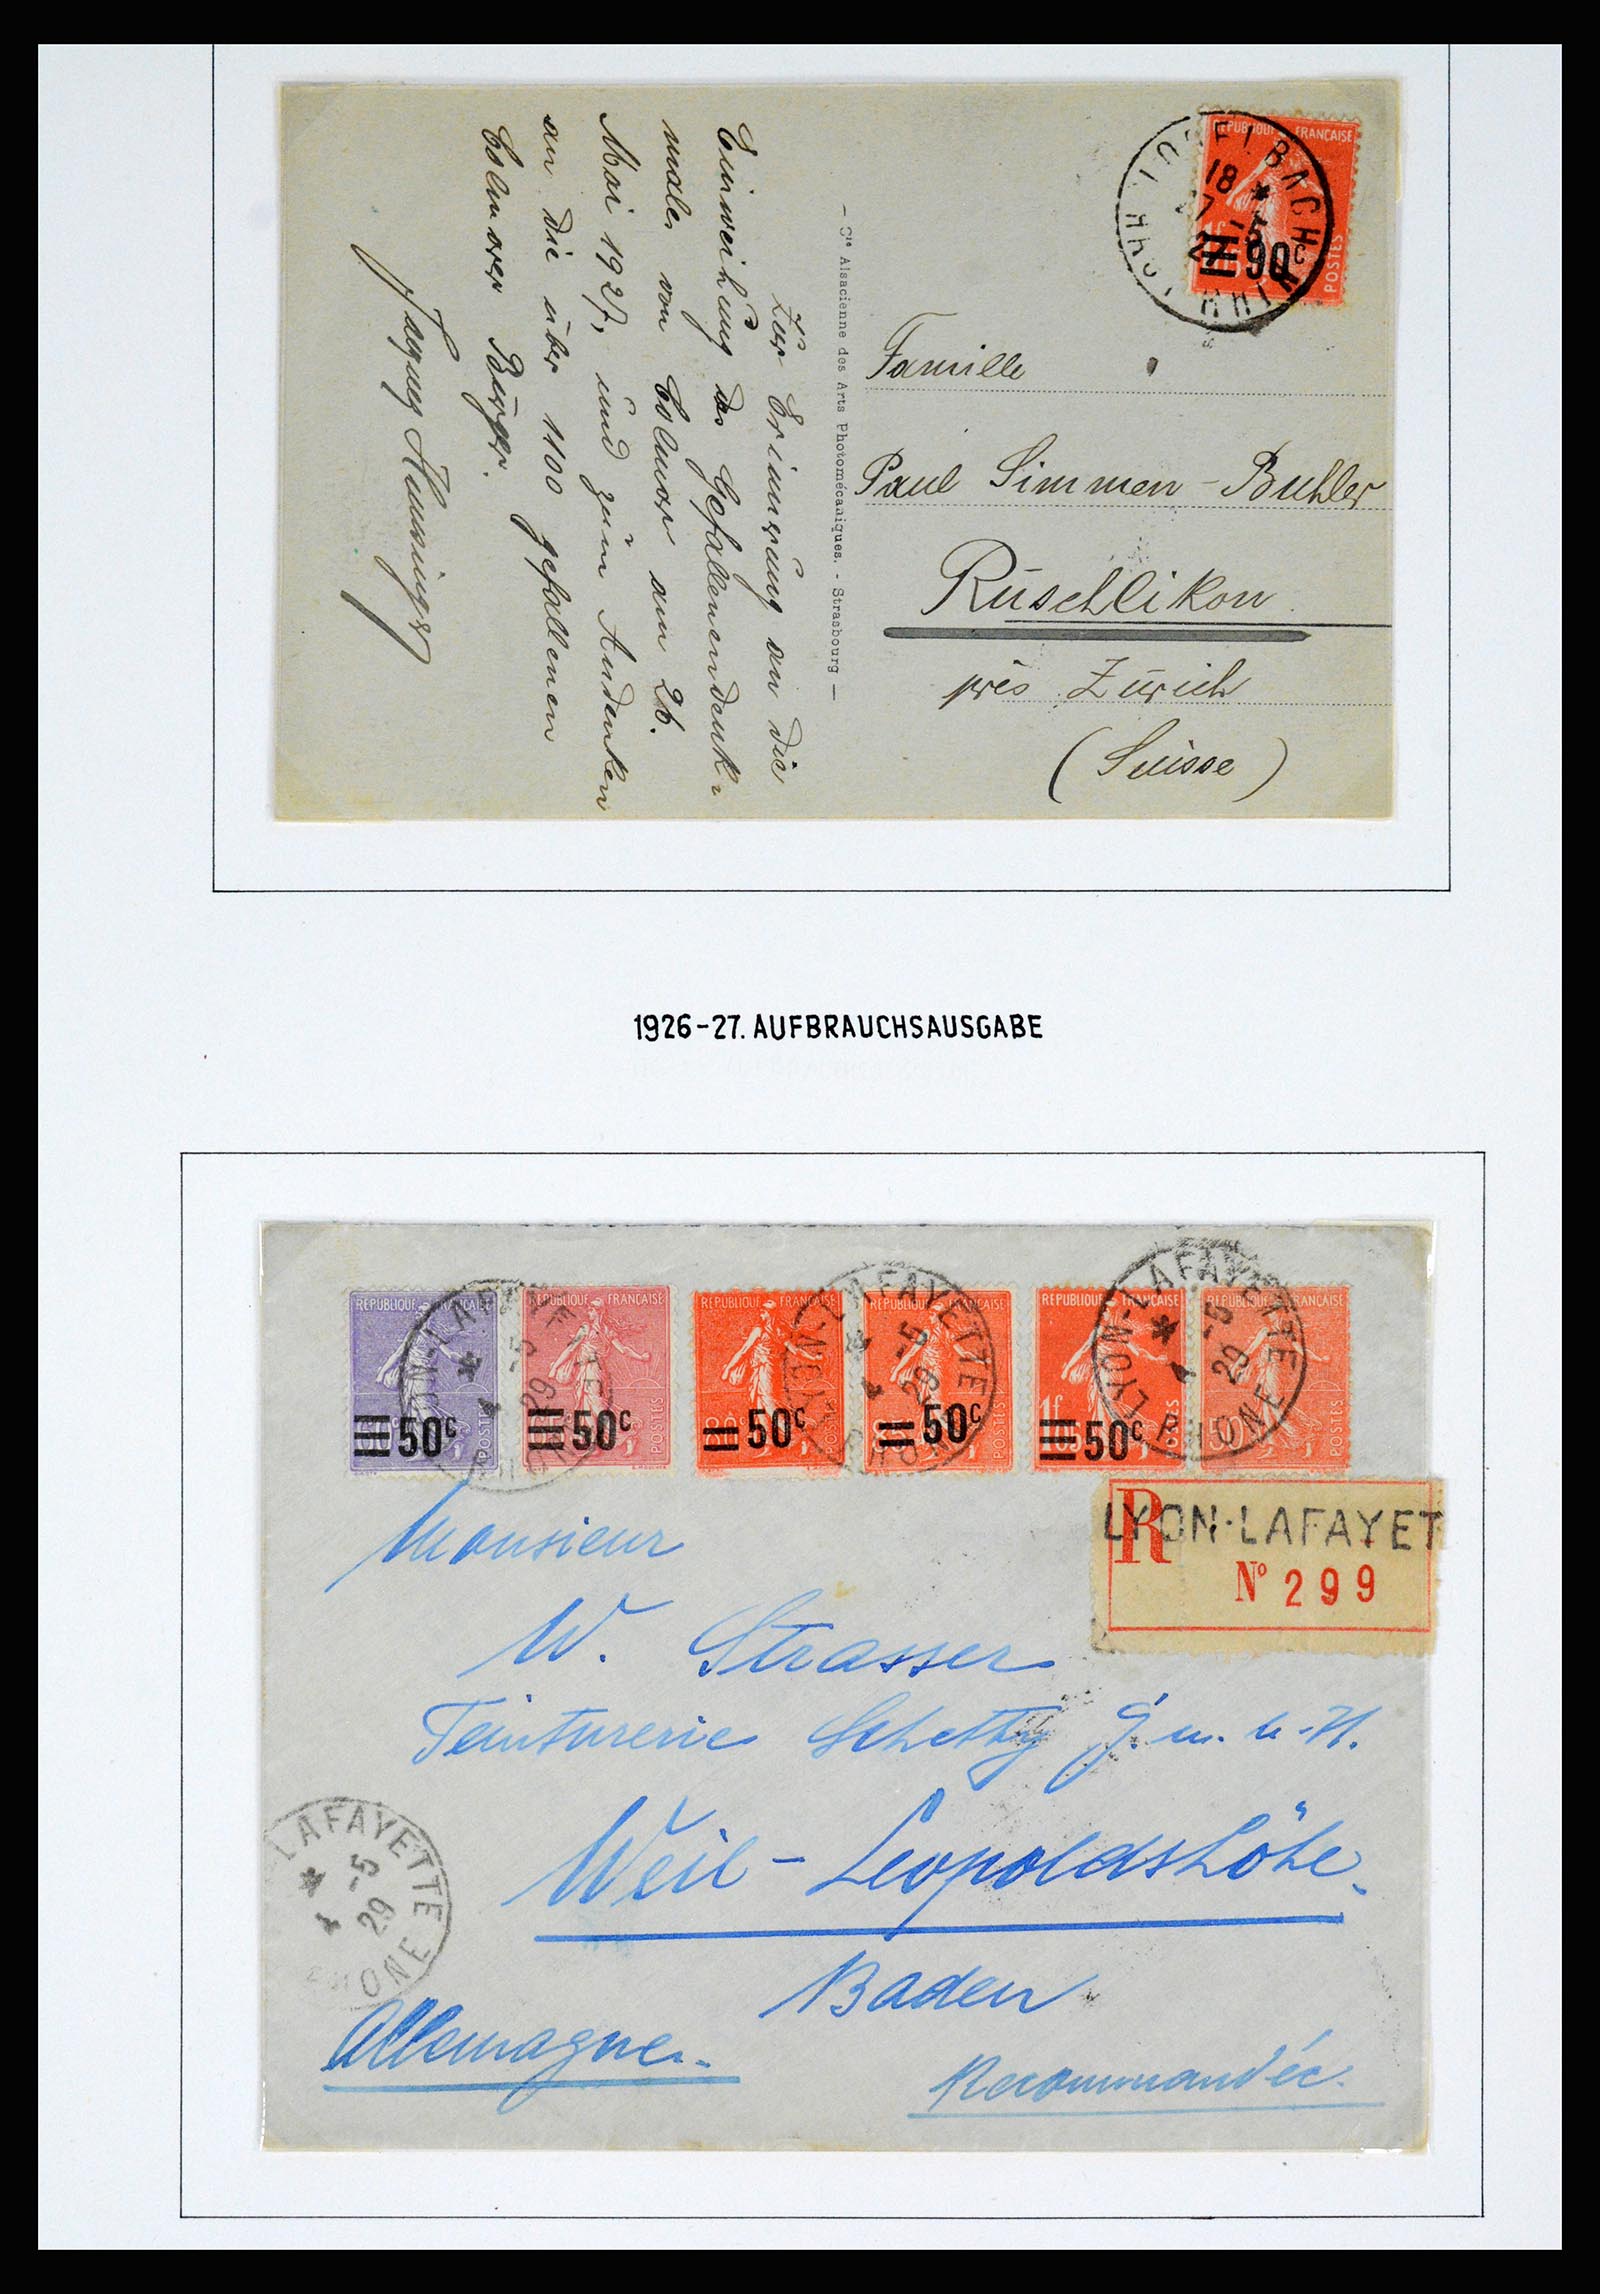 Zur Erinnerung an die
Einweihung des Gefallenendenk-
males von Colmar am 26.
Mai 1927, und zum Andenken
an die über 1100 gefallenen
Colmarer Bürger.
Jacques
- Cie Alsacienne des Arts Photomécaniques. - Strasbourg -
REPUBLIQUE FRANÇAISE
POSTES
90c
18 *
27 -5
27
HT RHIN
Famille
Paul Simmen-Buhler
Rüschlikon
près Zürich
(Suisse)
1926-27. AUFBRAUCHSAUSGABE
REPUBLIQUE FRANÇAISE
50c
POSTES
REPUBLIQUE FRANÇAISE
50c
POSTES
REPUBLIQUE FRANÇAISE
50c
POSTES
REPUBLIQUE FRANÇAISE
50c
POSTES
REPUBLIQUE FRANÇAISE
1f05
50c
POSTES
REPUBLIQUE FRANÇAISE
50c
POSTES
LYON-LAFAYETTE
* 4 -5 29
RHONE
LYON-LAFAYETTE
* 4 -5 29
RHONE
LYON-LAFAYETTE
* 4 -5 29
RHONE
R
LYON-LAFAYET
No 299
Monsieur
W. Strasser
Teinturerie Schetty G.m.b.H.
Weil-Leopoldshöhe.
Baden
Allemagne.
Recommandée.
LAFAYETTE
* 4 -5 29
RHONE